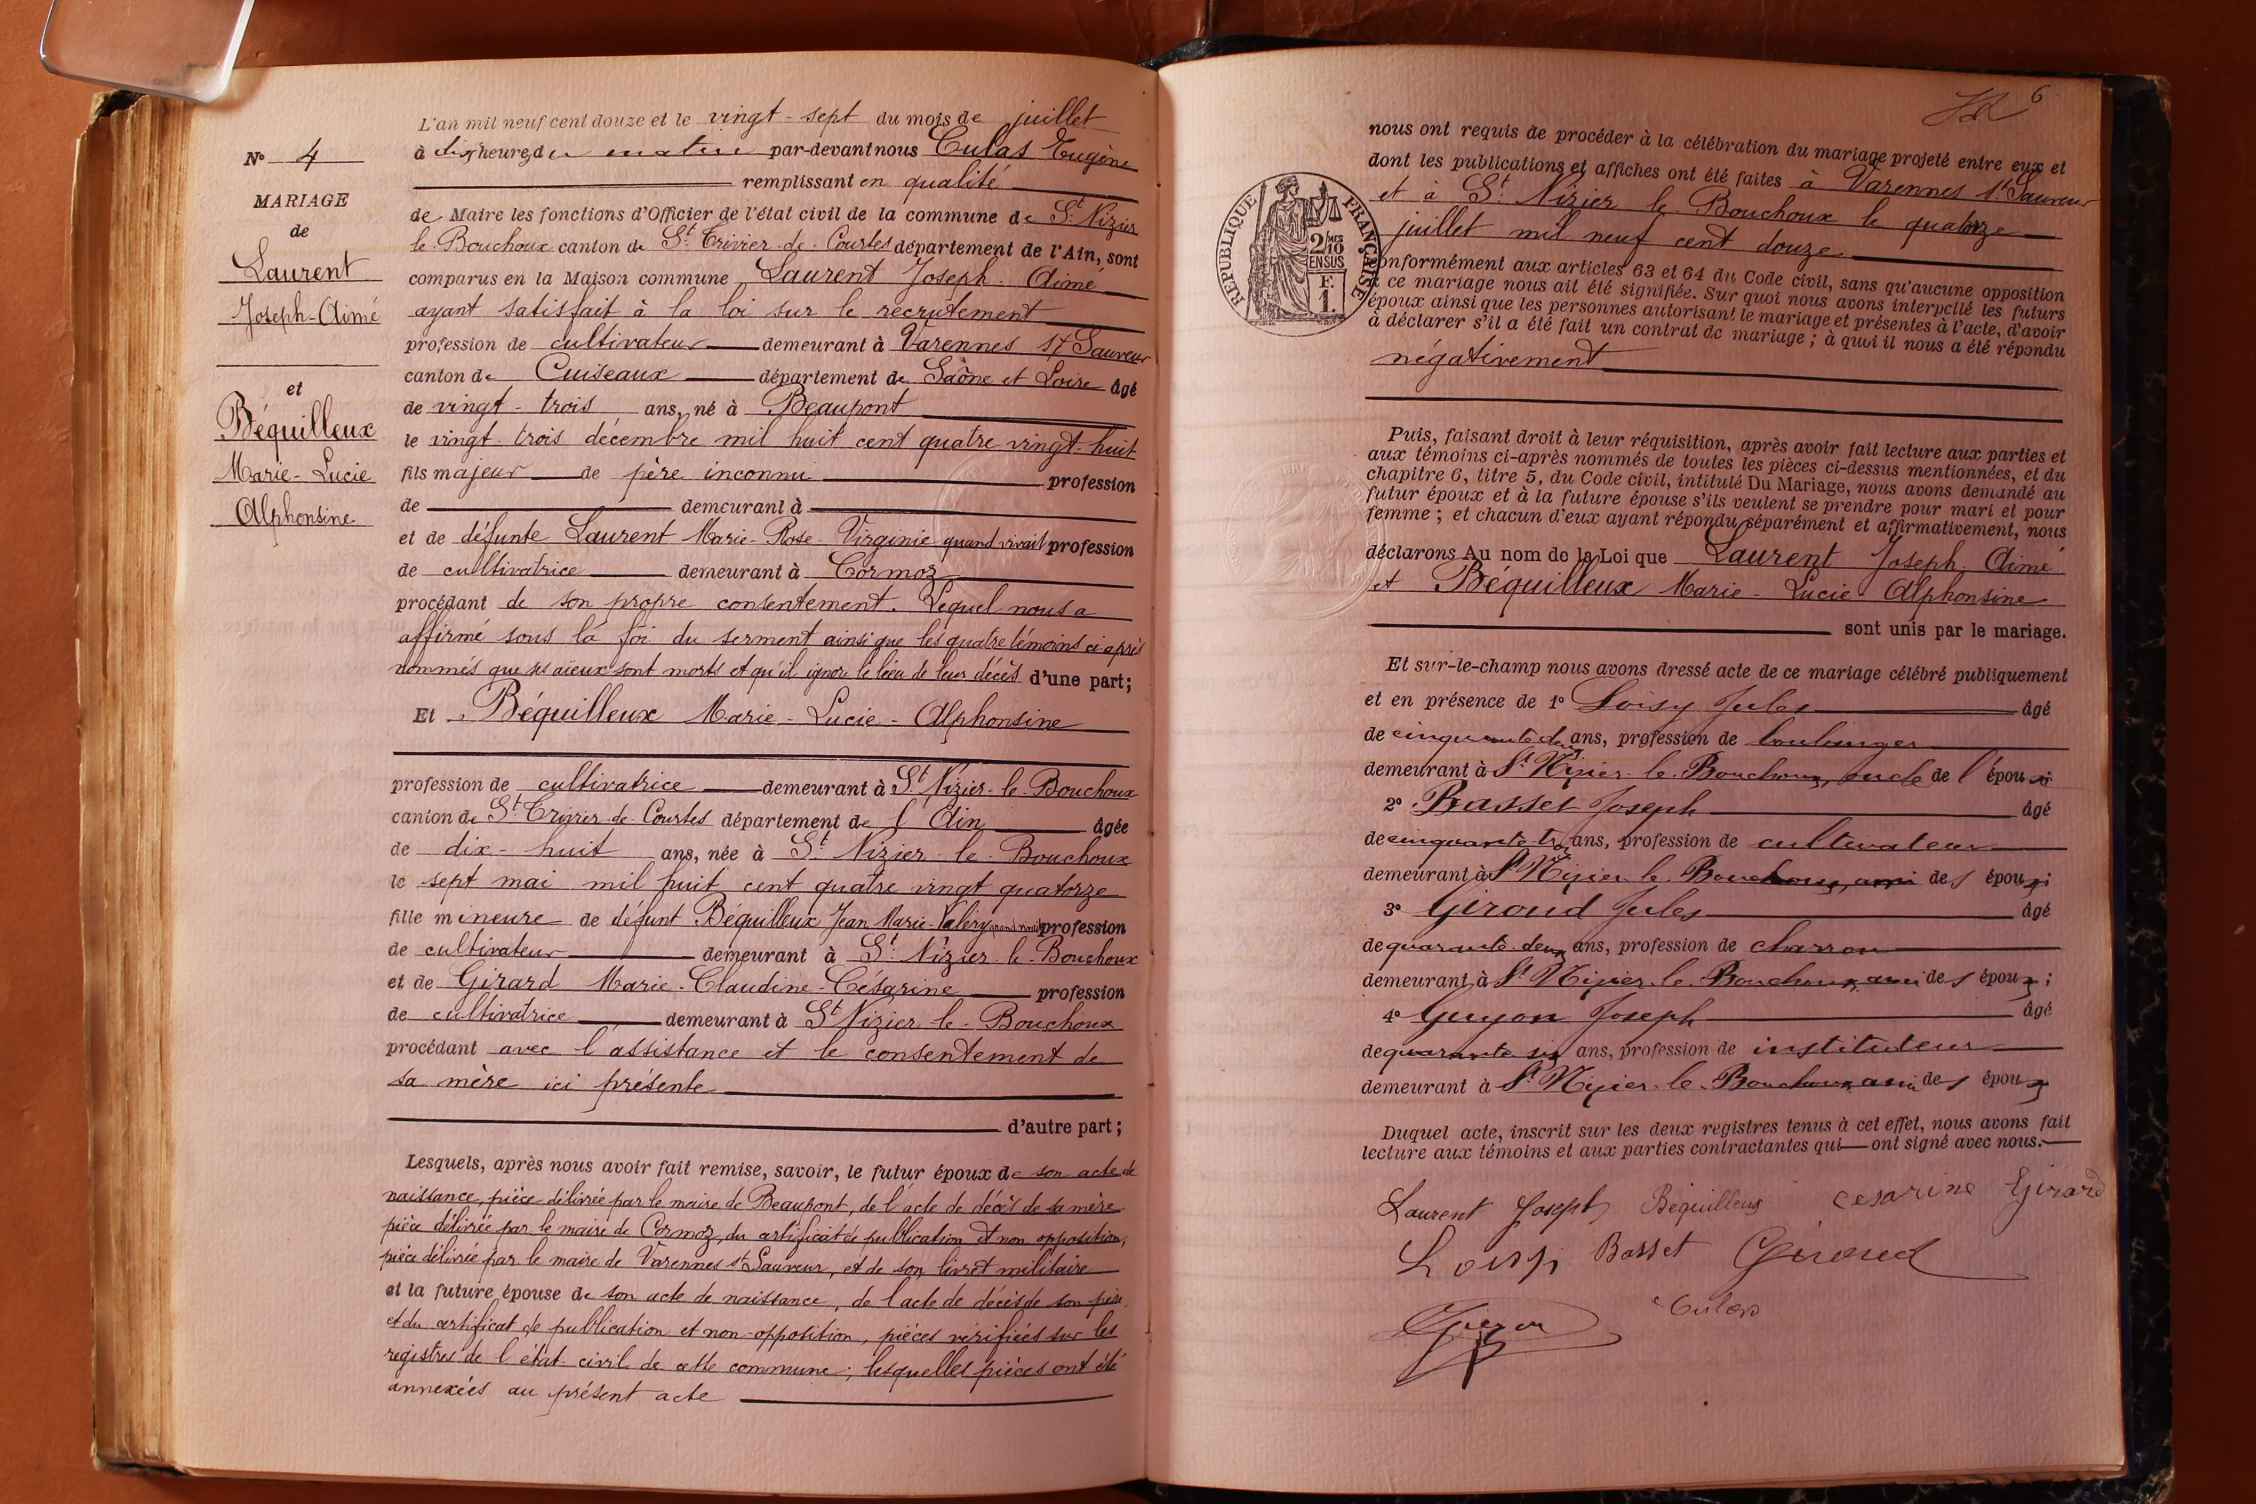 N° 4
MARIAGE
de
Laurent
Joseph-Aimé
et
Béquilleux
Marie-Lucie
Alphonsine
L'an mil neuf cent douze et le vingt-sept du mois de juillet
à dix heures du matin par-devant nous Culas Eugène
remplissant en qualité
de Maire les fonctions d'Officier de l'état civil de la commune de St Nizier
le Bouchoux canton de St Trivier-de-Courtes département de l'Ain, sont
comparus en la Maison commune, Laurent Joseph-Aimé
ayant satisfait à la loi sur le recrutement
profession de cultivateur demeurant à Varennes St Sauveur
canton de Cuiseaux département de Saône et Loire âgé
de vingt-trois ans, né à Beaupont
le vingt-trois décembre mil huit cent quatre vingt-huit
fils majeur de père inconnu profession
de demeurant à
et de défunte Laurent Marie-Rose-Virginie quand vivait profession
de cultivatrice demeurant à Cormoz
procédant de son propre consentement. Lequel nous a
affirmé sous la foi du serment ainsi que les quatre témoins ci-après
nommés que ses aïeux sont morts et qu'il ignore le lieu de leur décès d'une part;
Et Béquilleux Marie-Lucie-Alphonsine
profession de cultivatrice demeurant à St Nizier-le-Bouchoux
canton de St Trivier-de-Courtes département de l'Ain âgée
de dix-huit ans, née à St Nizier-le-Bouchoux
le sept mai mil huit cent quatre vingt quatorze
fille mineure de défunt Béquilleux Jean Marie-Valéry quand vivait profession
de cultivateur demeurant à St Nizier-le-Bouchoux
et de Girard Marie-Claudine-Césarine profession
de cultivatrice demeurant à St Nizier-le-Bouchoux
procédant avec l'assistance et le consentement de
sa mère ici présente
d'autre part;
Lesquels, après nous avoir fait remise, savoir, le futur époux de son acte de
naissance, pièce délivrée par le maire de Beaupont, de l'acte de décès de sa mère
pièce délivrée par le maire de Cormoz, du certificat de publication et non opposition,
pièce délivrée par le maire de Varennes St Sauveur, et de son livret militaire
et la future épouse de son acte de naissance, de l'acte de décès de son père
et du certificat de publication et non-opposition, pièces vérifiées sur les
registres de l'état-civil de cette commune; lesquelles pièces ont été
annexées au présent acte
6
nous ont requis de procéder à la célébration du mariage projeté entre eux et
dont les publications et affiches ont été faites à Varennes St Sauveur
et à St Nizier le Bouchoux le quatorze
juillet mil neuf cent douze
RÉPUBLIQUE FRANÇAISE
2/10 EN SUS
F.
1.
conformément aux articles 63 et 64 du Code civil, sans qu'aucune opposition
à ce mariage nous ait été signifiée. Sur quoi nous avons interpellé les futurs
époux ainsi que les personnes autorisant le mariage et présentes à l'acte, d'avoir
à déclarer s'il a été fait un contrat de mariage; à quoi il nous a été répondu
négativement
Puis, faisant droit à leur réquisition, après avoir fait lecture aux parties et
aux témoins ci-après nommés de toutes les pièces ci-dessus mentionnées, et du
chapitre 6, titre 5, du Code civil, intitulé Du Mariage, nous avons demandé au
futur époux et à la future épouse s'ils veulent se prendre pour mari et pour
femme; et chacun d'eux ayant répondu séparément et affirmativement, nous
déclarons Au nom de la Loi que Laurent Joseph-Aimé
et Béquilleux Marie-Lucie Alphonsine
sont unis par le mariage.
Et sur-le-champ nous avons dressé acte de ce mariage célébré publiquement
et en présence de 1° Loisy Jules âgé
de cinquante deux ans, profession de boulanger
demeurant à St Nizier-le-Bouchoux, oncle de l'épou
2° Basset Joseph âgé
de cinquante trois ans, profession de cultivateur
demeurant à St Nizier le Bouchoux, ami des époux;
3° Giroud Jules âgé
de quarante-deux ans, profession de charron
demeurant à St Nizier-le-Bouchoux, ami des époux;
4° Guyon Joseph âgé
de quarante six ans, profession de instituteur
demeurant à St Nizier-le-Bouchoux ami des époux
Duquel acte, inscrit sur les deux registres tenus à cet effet, nous avons fait
lecture aux témoins et aux parties contractantes qui ont signé avec nous.
Laurent Joseph Béquilleux Cesarine Girard
Loisy Basset Giroud
Guyon Culas